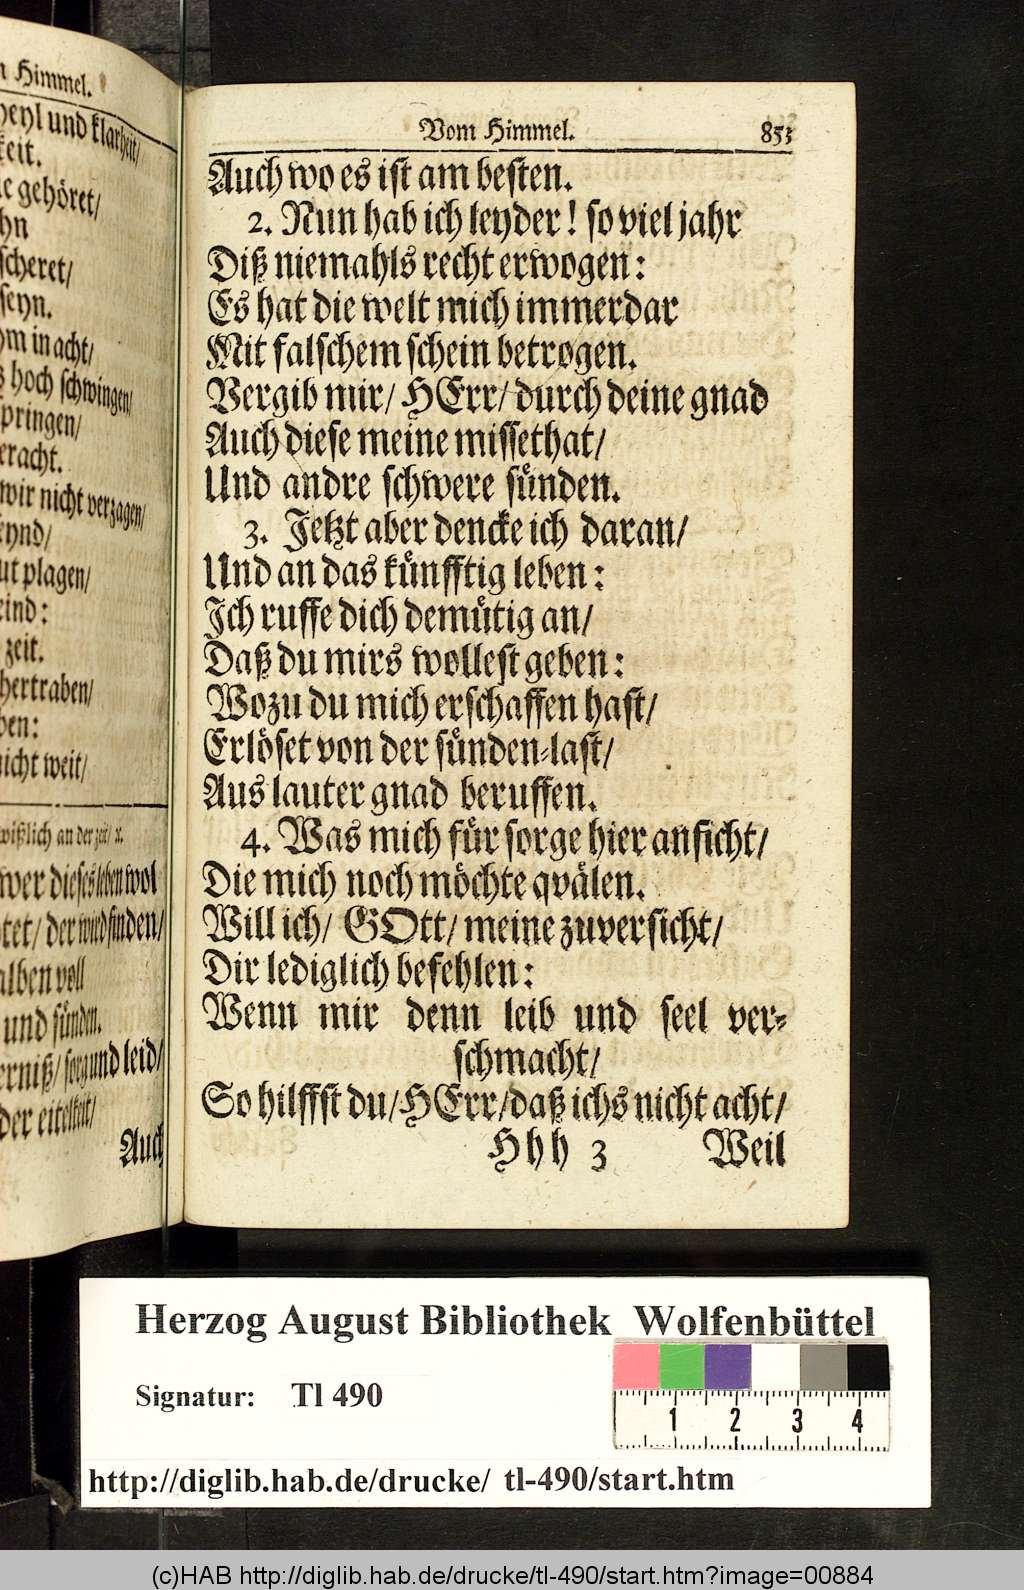 Himmel.
heyl und klarheit/
keit.
gehöret/
scheret/
seyn.
in acht/
hoch schwingen/
springen/
eracht.
wir nicht verzagen/
plagen/
zeit.
hertraben/
nicht weit/
an der zeit/ ꝛc.
wer dieses leben wol
der wird finden/
alben voll
und sünden.
sorg und leid/
der eitelkeit/
Auch
Vom Himmel. 853
Auch wo es ist am besten.
2. Nun hab ich leyder! so viel jahr
Diß niemahls recht erwogen:
Es hat die welt mich immerdar
Mit falschem schein betrogen.
Vergib mir/ HErr/ durch deine gnad
Auch diese meine missethat/
Und andre schwere sünden.
3. Jetzt aber dencke ich daran/
Und an das künfftig leben:
Ich ruffe dich demütig an/
Daß du mirs wollest geben:
Wozu du mich erschaffen hast/
Erlöset von der sünden-last/
Aus lauter gnad beruffen.
4. Was mich für sorge hier anficht/
Die mich noch möchte qvälen.
Will ich/ GOtt/ meine zuversicht/
Dir lediglich befehlen:
Wenn mir denn leib und seel ver-
schmacht/
So hilffst du/ HErr/ daß ichs nicht acht/
Hhh 3 Weil
Herzog August Bibliothek Wolfenbüttel
Signatur: Tl 490
1 2 3 4
http://diglib.hab.de/drucke/ tl-490/start.htm
(c)HAB http://diglib.hab.de/drucke/tl-490/start.htm?image=00884